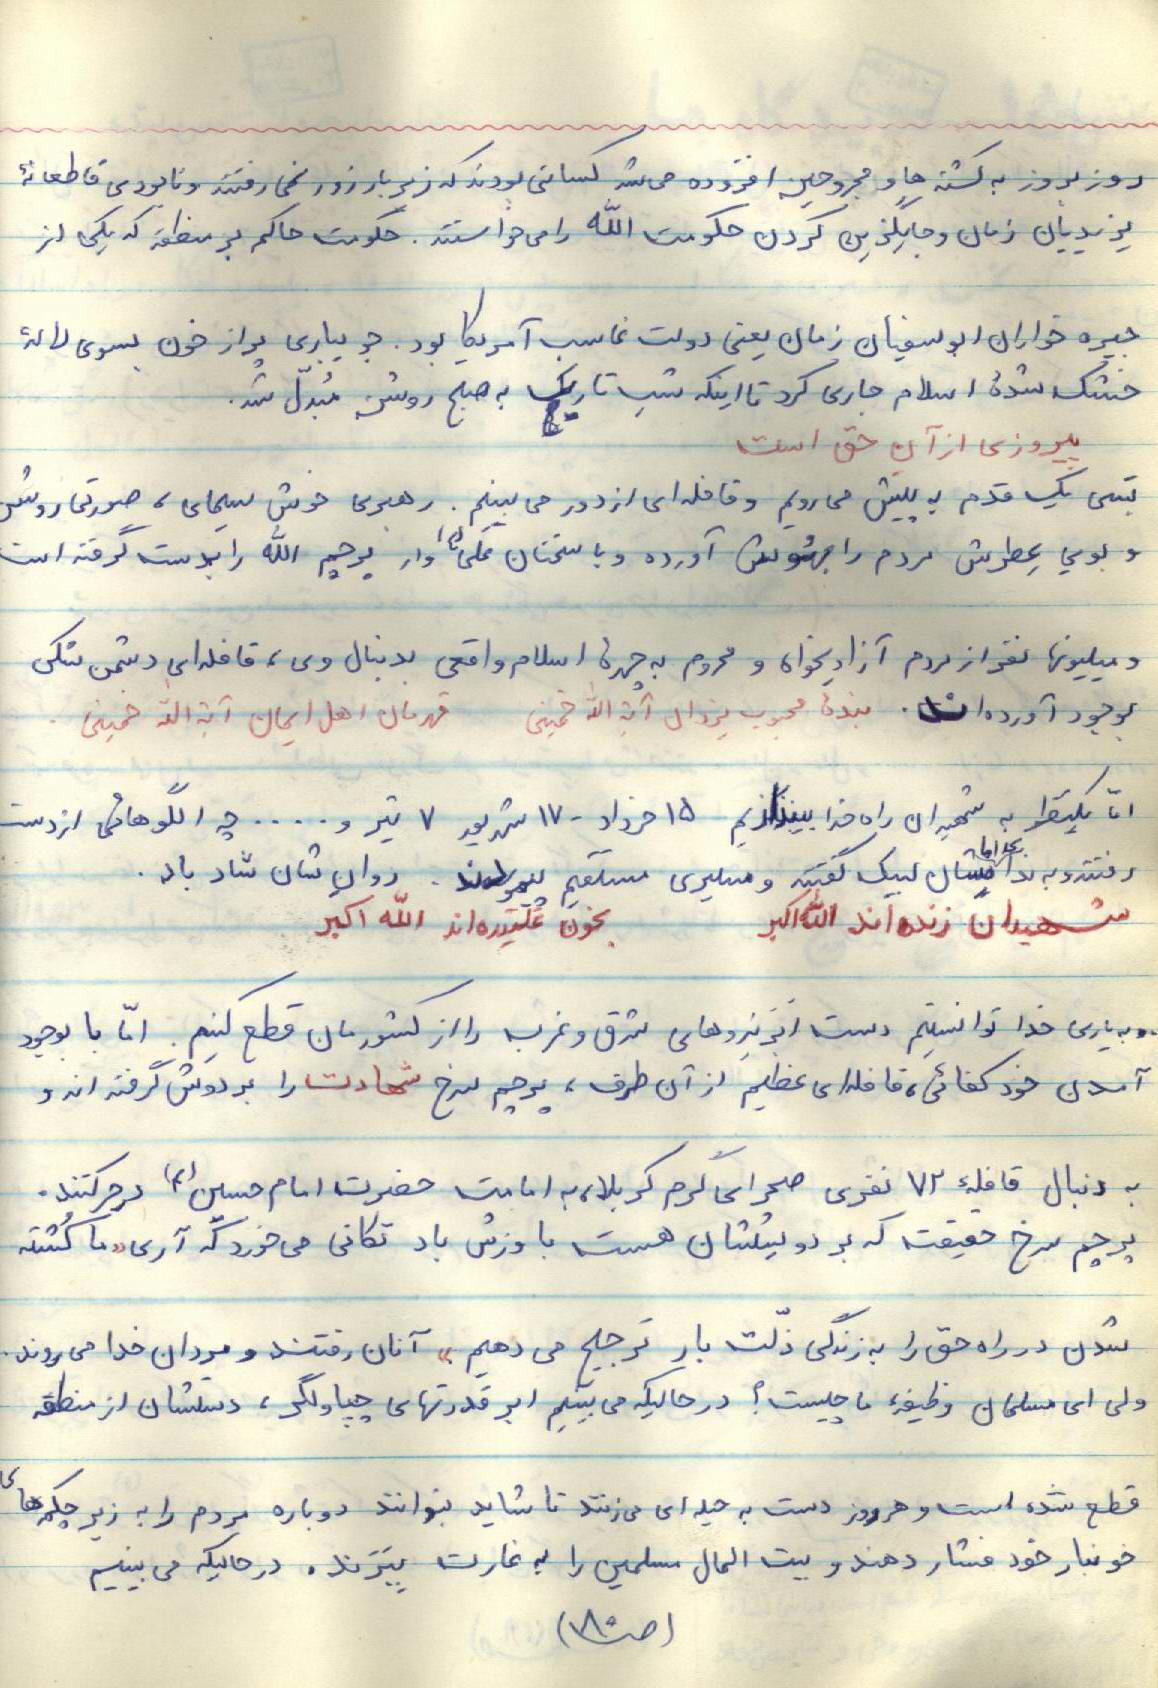 روز بروز به کشته ها و مجروحین افزوده می شد کسانی بودند که زیر بار زور نمی رفتند و نابودی قاطعانهٔ
یزیدیان زمان و جایگزین کردن حکومت الله را می خواستند. حکومت حاکم بر منطقه که یکی از
جیره خواران ابوسفیان زمان یعنی دولت غاسب آمریکا بود. جویباری پر از خون بسوی لالهٔ
خشک شدهٔ اسلام جاری کرد تا اینکه شب تاریک به صبح روشن مُبدّل شد.
پیروزی از آن حق است
یک قدم به پیش می رویم و قافله ای از دور می بینیم. رهبری خوش سیمای، صورتی روشن
و بوی عطرش مردم را بهوش آورده و با سخنان علی(ع) وار پرچم الله را بدست گرفته است
و میلیونها نفر از مردم آزادیخواه و محروم به چهرهٔ اسلام واقعی بدنبال وی، قافله ای دشمن شکن
بوجود آورده اند. بندهٔ محبوب یزدان آیة الله خمینی قهرمان اهل ایمان آیة الله خمینی.
امّا یک نظر به شهیدان راه خدا بیندازیم ۱۵ خرداد - ۱۷ شهریور ۷ تیر و .... چه الگوهائی از دست
رفتند و به ندای امامشان لبیک گفته و مسیری مستقیم پیمودند. روان شان شاد باد.
شهیدان زنده اند الله اکبر بخون غلتیده اند الله اکبر
و به یاری خدا توانستیم دست ابرنیروهای شرق و غرب را از کشورمان قطع کنیم. امّا با بوجود
آمدن خود کفائی، قافله ای عظیم از آن طرف، پرچم سرخ شهادت را بر دوش گرفته اند و
به دنبال قافلهٔ ۷۲ نفری صحرای گرم کربلا، به امامت حضرت امام حسین (ع) در حرکتند.
پرچم سرخ حقیقت که بر دوششان هست با وزش باد تکانی می خورد که آری «ما کُشته
شدن در راه حق را به زندگی ذلّت بار ترجیح می دهیم.» آنان رفتند و مردان خدا می روند.
ولی ای مسلمان وظیفهٔ ما چیست؟ در حالیکه می بینیم ابر قدرتهای چپاولگر، دستشان از منطقه
قطع شده است و هر روز دست به حیله ای می زنند تا شاید بتوانند دوباره مردم را به زیر چکمه های
خونبار خود فشار دهند و بیت المال مسلمین را به غارت ببَرَند. در حالیکه می بینیم